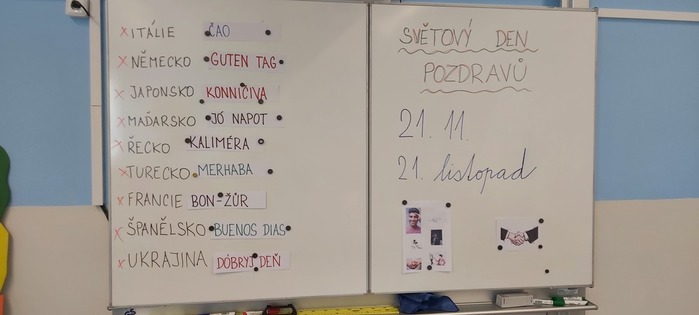 ITÁLIE ČAO
NĚMECKO GUTEN TAG
JAPONSKO KONNIČIVA
MAĎARSKO JÓ NAPOT
ŘECKO KALIMÉRA
TURECKO MERHABA
FRANCIE BON-ŽŮR
ŠPANĚLSKO BUENOS DIAS
UKRAJINA DÓBRYJ DEŇ
SVĚTOVÝ DEN
POZDRAVŮ
21. 11.
21. listopad